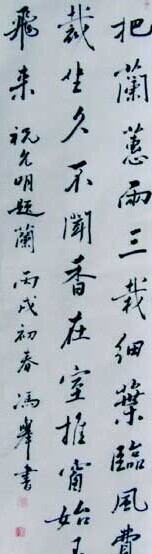 把蘭蕙兩三栽細葉臨風費
裁坐久不聞香在室推窗始
飛来祝允明題蘭丙戌初春馮舉書